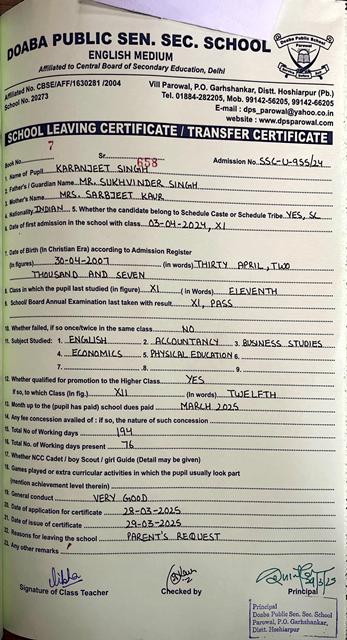 DOABA PUBLIC SEN. SEC. SCHOOL
ENGLISH MEDIUM
Affiliated to Central Board of Secondary Education, Delhi
Affiliated No. CBSE/AFF/1630281 /2004
School No. 20273
Vill Parowal, P.O. Garhshankar, Distt. Hoshiarpur (Pb.)
Tel. 01884-282205, Mob. 99142-56205, 99142-66205
E-mail : dps_parowal@yahoo.co.in
website : www.dpsparowal.com
SCHOOL LEAVING CERTIFICATE / TRANSFER CERTIFICATE
Book No. 7 Sr. 658 Admission No. SSC-U-955/24
1. Name of Pupil KARANJEET SINGH
2. Father's / Guardian Name MR. SUKHVINDER SINGH
3. Mother's Name MRS. SARBJEET KAUR
4. Nationality INDIAN 5. Whether the candidate belong to Schedule Caste or Schedule Tribe YES, SC
6. Date of first admission in the school with class 03-04-2024, XI
7. Date of Birth (In Christian Era) according to Admission Register
(in figures) 30-04-2007 (in words) THIRTY APRIL, TWO
THOUSAND AND SEVEN
8. Class in which the pupil last studied (in figure) XI (in Words) ELEVENTH
9. School/ Board Annual Examination last taken with result XI, PASS
10. Whether failed, if so once/twice in the same class NO
11. Subject Studied: 1. ENGLISH 2. ACCOUNTANCY 3. BUSINESS STUDIES
4. ECONOMICS 5. PHYSICAL EDUCATION 6.
7. 8. 9.
12. Whether qualified for promotion to the Higher Class YES
If so, to which Class (In fig.) XII (In Words) TWELFTH
13. Month up to the (pupil has paid) school dues paid MARCH 2025
14. Any fee concession availed of : if so, the nature of such concession
15. Total No of Working days 194
16. Total No. of Working days present 76
17. Whether NCC Cadet / boy Scout / girl Guide (Detail may be given)
18. Games played or extra curricular activities in which the pupil usually look part
(mention achievement level therein)
19. General conduct VERY GOOD
20. Date of application for certificate 28-03-2025
21. Date of issue of certificate 29-03-2025
22. Reasons for leaving the school PARENT'S REQUEST
23. Any other remarks
Signature of Class Teacher Checked by Principal
Principal
Doaba Public Sen. Sec. School
Parowal, P.O. Garhshankar,
Distt. Hoshiarpur